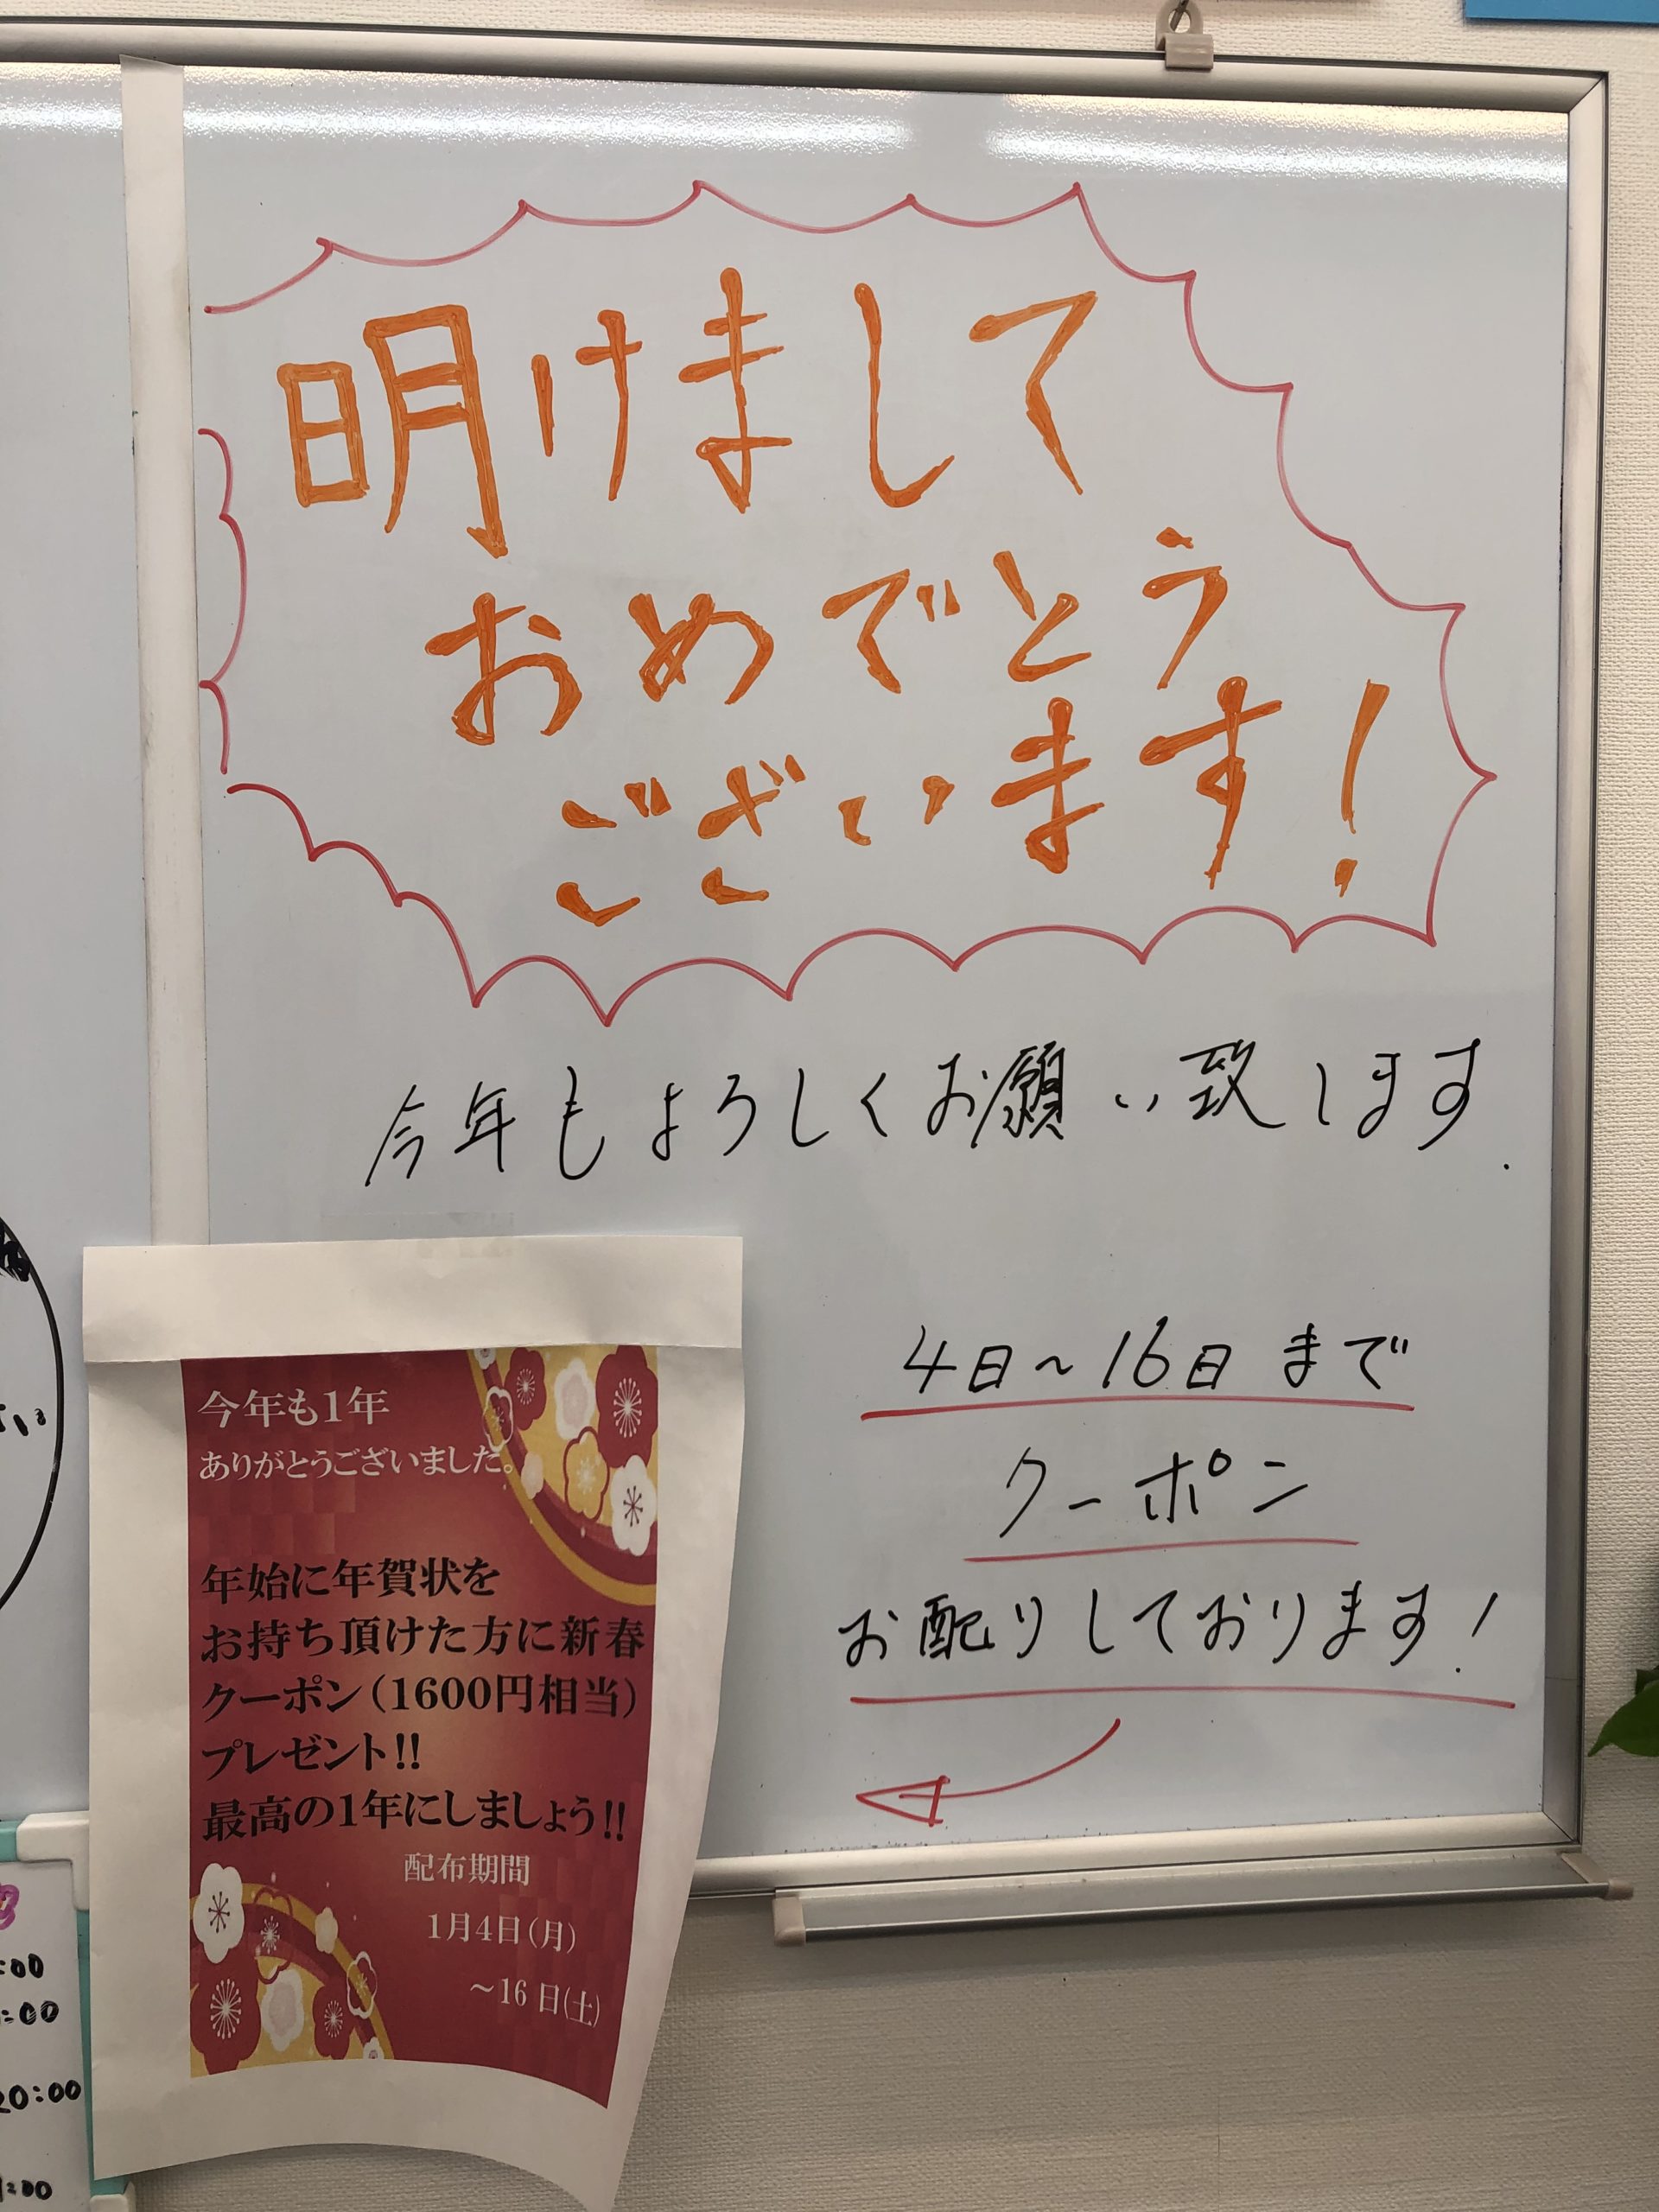 明けまして
おめでとう
ございます!
今年もよろしくお願い致します.
4日~16日まで
クーポン
お配りしております!
今年も1年
ありがとうございました。
年始に年賀状を
お持ち頂けた方に新春
クーポン(1600円相当)
プレゼント!!
最高の1年にしましょう!!
配布期間
1月4日(月)
~16日(土)
い
:00
:00
20:00
:00